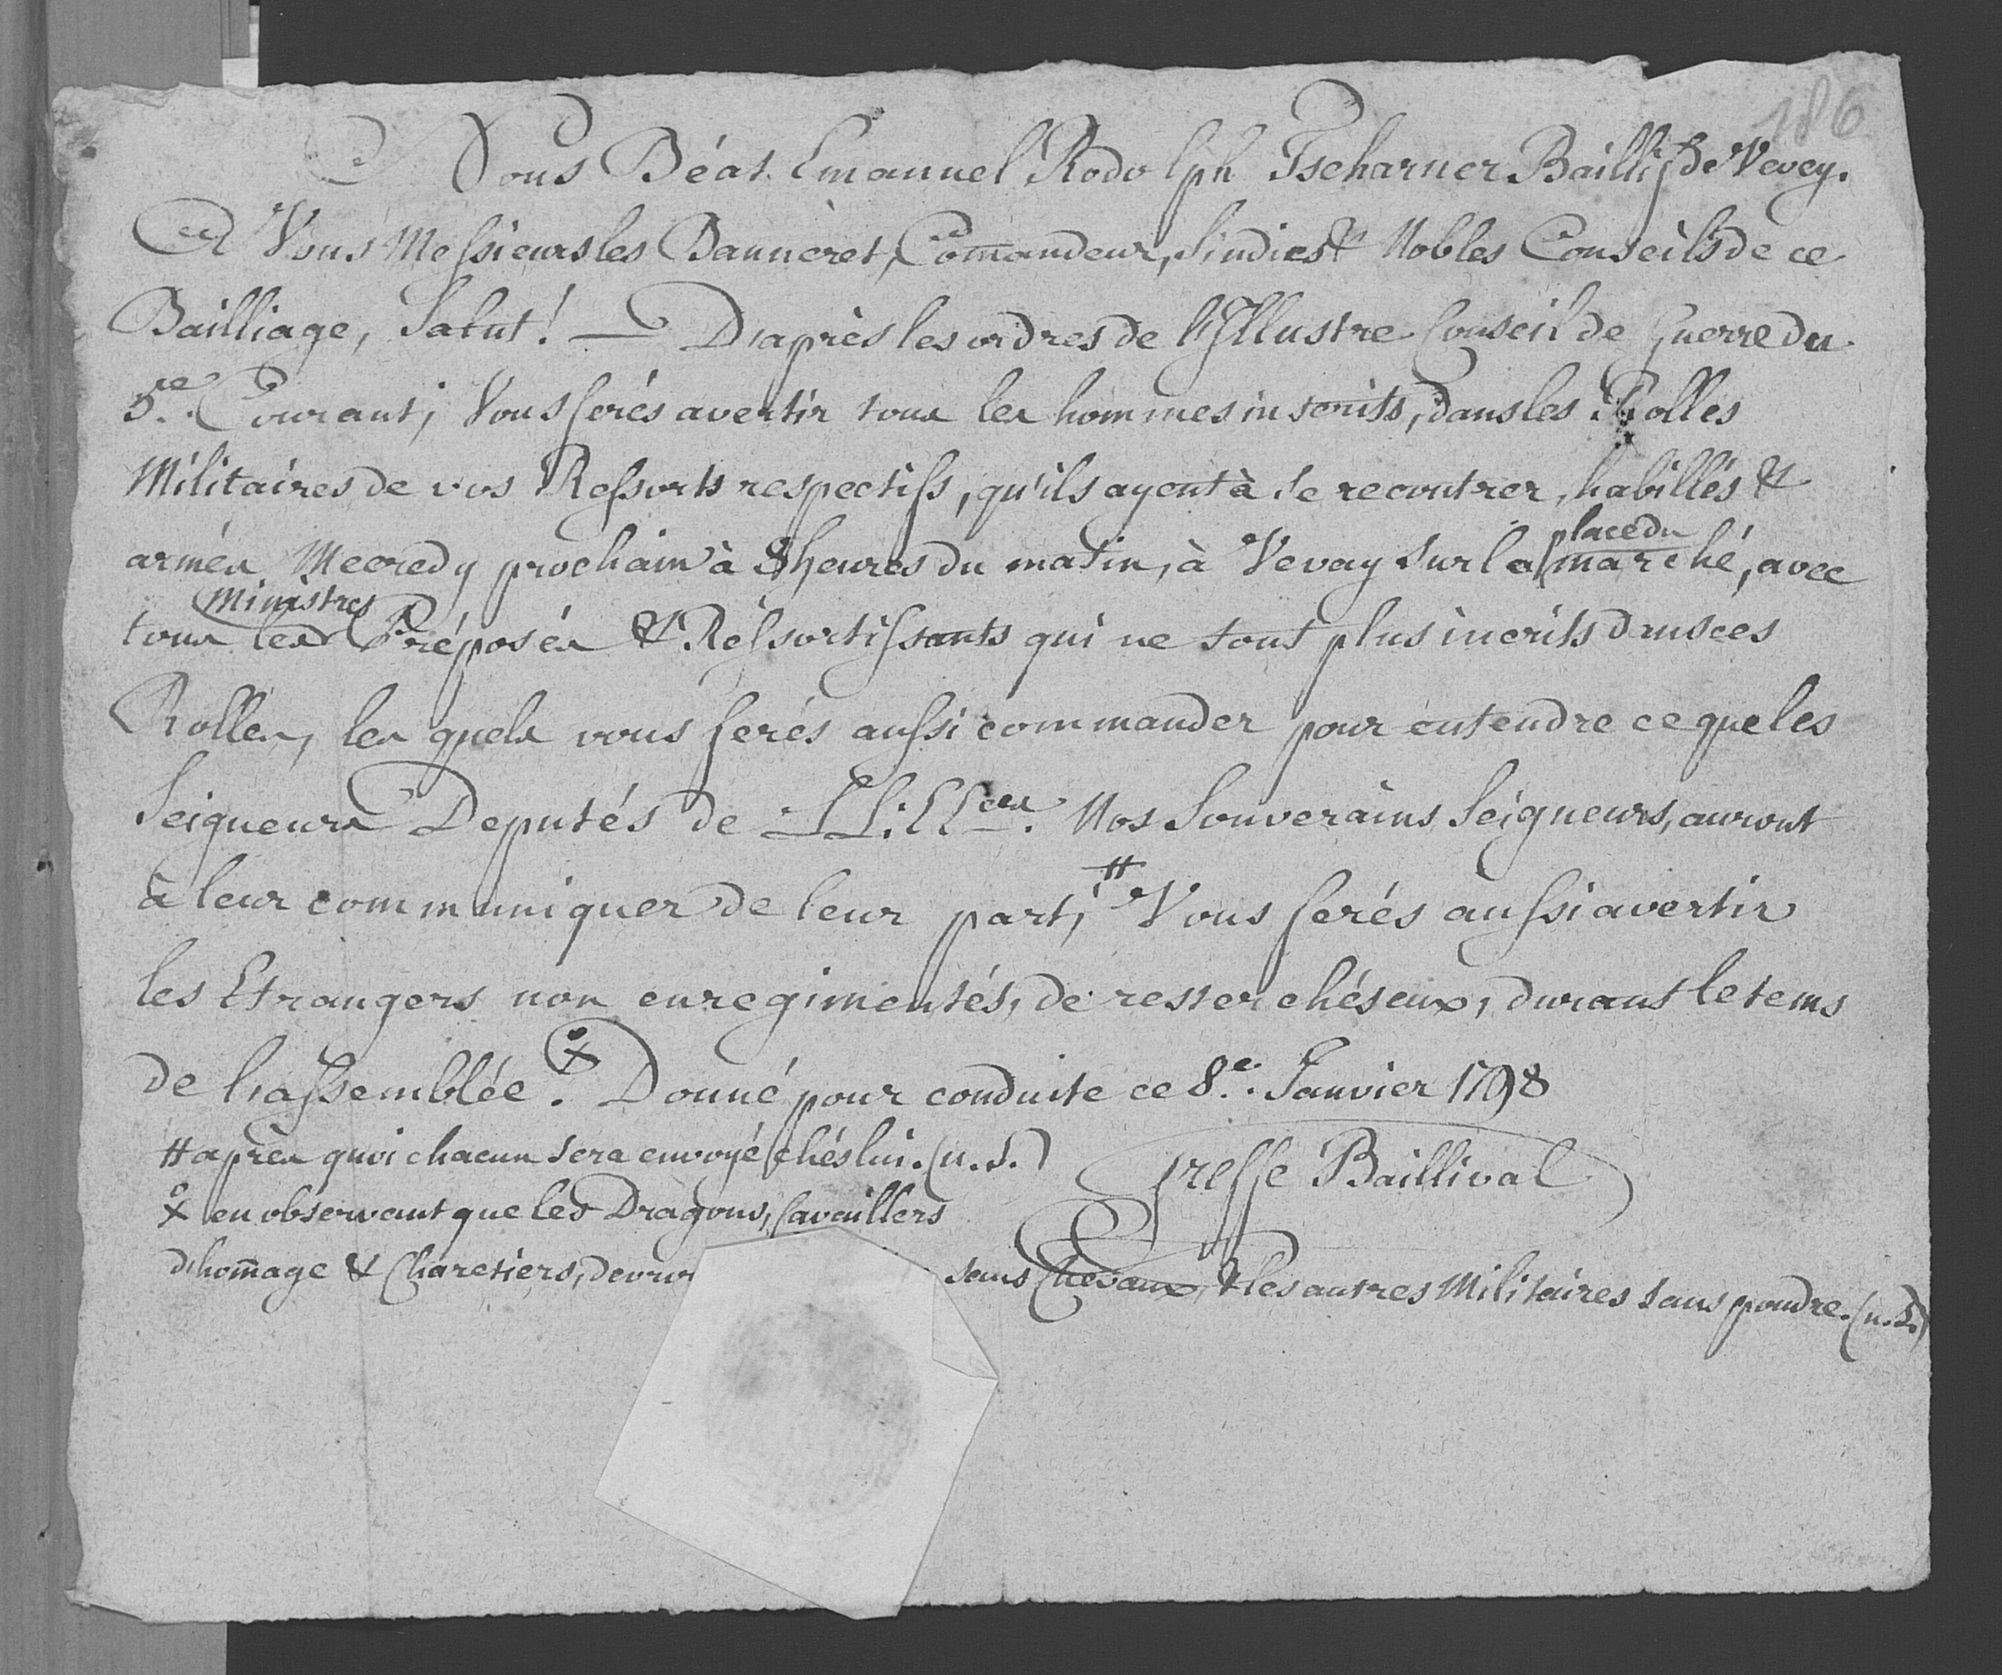 186
Nous Béat Emanuel Rodolph Tscharner Baillif de Vevey.
A Vous Messieurs les Banneret, Comandeur, Sindics & Nobles Conseils de ce
Bailliage, Salut! — D'après les ordres de l'Illustre Conseil de Guerre du
5.e Courant; Vous ferés avertir tous les hommes inscrits, dans les Rolles
Militaires de vos Ressorts respectifs, qu'ils ayent à se recontrer, habillés &
armés Mecredy prochain à 8 heures du matin, à Vevay sur la place du marché, avec
tous les Ministres Préposés & Ressortissants qui ne sont plus incrits dans ces
Rolles, les quels vous ferés aussi commander pour entendre ce que les
Seigneurs Deputés de LL.EEces. Nos Souverains Seigneurs, auront
à leur communiquer de leur part; # Vous ferés aussi avertir
les Etrangers non enregimentés, de rester chés eux, durant le tems
de l'assemblée. x Donné pour conduite ce 8.e Janvier 1798
# après quoi chacun sera envoyé chés lui. (n. s.)
Greffe Baillival
x en observant que les Dragons, Cavaillers
d'homage & Charetiers, devr sans Chevaux, & les autres Militaires sans poudre. (n. s.)